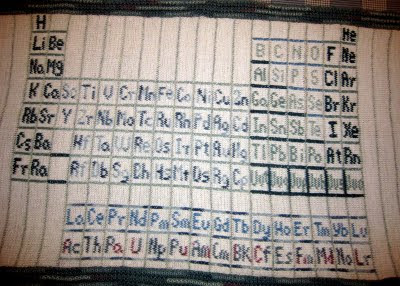 H He
Li Be B C N O F Ne
Na Mg Al Si P S Cl Ar
K Ca Sc Ti V Cr Mn Fe Co Ni Cu Zn Ga Ge As Se Br Kr
Rb Sr Y Zr Nb Mo Tc Ru Rh Pd Ag Cd In Sn Sb Te I Xe
Cs Ba Hf Ta W Re Os Ir Pt Au Hg Tl Pb Bi Po At Rn
Fr Ra Rf Db Sg Bh Hs Mt Ds Rg
La Ce Pr Nd Pm Sm Eu Gd Tb Dy Ho Er Tm Yb Lu
Ac Th Pa U Np Pu Am Cm BK Cf Es Fm Md No Lr